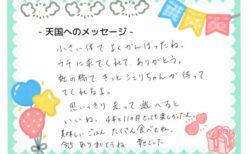 - 天国へのメッセージ -
小さい体で よくがんばったね。
ウチに来てくれて ありがとう。
虹の橋で きっと シェリちゃんが 待って
てくれるよ。
思いっきり 走って 遊べると
いいね。 4年と11ヶ月 とっても楽しかったよ。
美味しいごはん たくさん食べてね。
ありがとうね